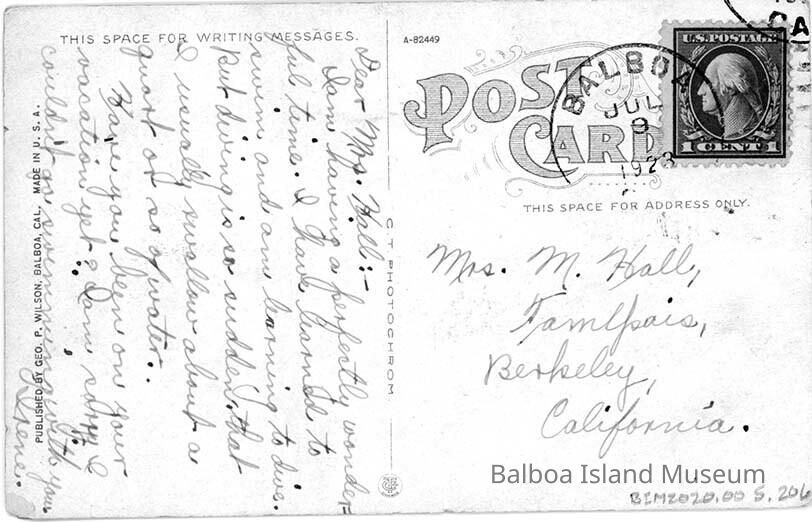 THIS SPACE FOR WRITING MESSAGES.
Dear Mrs. Hall:-
I am having a perfectly wonder-
ful time. I have learned to
swim and am learning to dive.
But diving is so sudden that
I usually swallow about a
quart or so of water.
Have you been on your
vacation yet? I am sorry I
couldn't go swimming with you.
Irene.
PUBLISHED BY GEO. P. WILSON, BALBOA, CAL, MADE IN U. S. A.
C T PHOTOCHROM
A-82449
POST CARD
BALBOA
JUL
9
1923
CA
U.S. POSTAGE
1 CENT 1
THIS SPACE FOR ADDRESS ONLY.
Mrs. M. Hall,
Tamlpais,
Berkeley,
California.
Balboa Island Museum
BIM2020.00 5.206